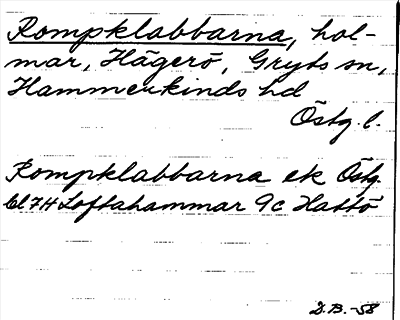 Rompklabbarna, hol-
mar, Hägerö, Gryts sn,
Hammerkinds hd
Östg. l.
Rompklabbarna ek Östg.
bl 7H Loftahammar 9c Hattö
D.B.-58